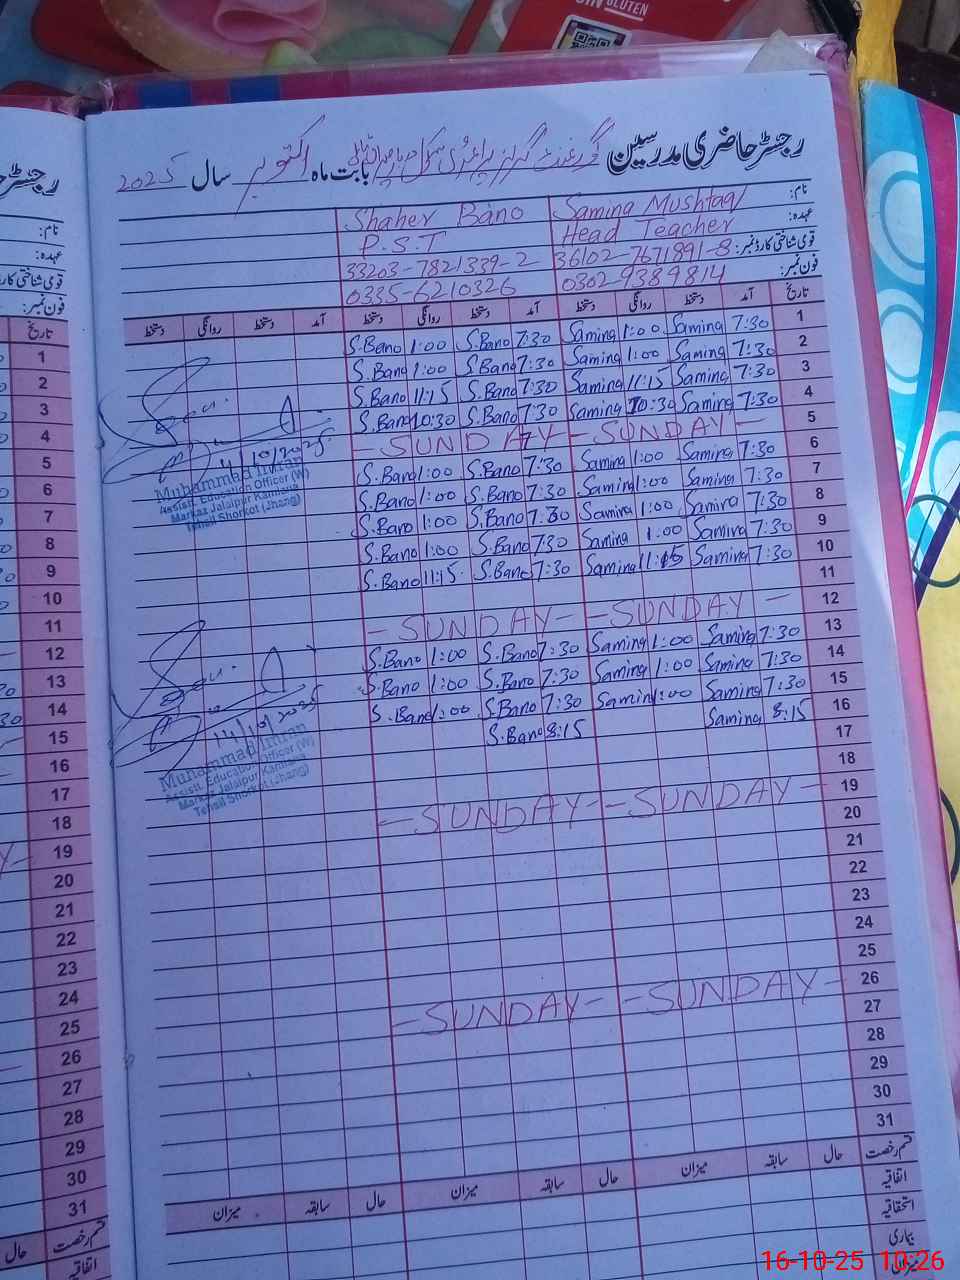 GLUTEN
رجسٹر حاضری مدرسین گورنمنٹ گرلز پرائمری سکول بابت ماہ اکتوبر سال 2025
نام: Samina Mushtaq Shaher Bano
عہدہ: Head Teacher P.S.T
قومی شناختی کارڈ نمبر: 36102-7671891-8 33203-7821339-2
فون نمبر: 0302-9389814 0335-6210326
تاریخ آمد دستخط روانگی دستخط آمد دستخط روانگی دستخط آمد دستخط روانگی دستخط
1 7:30 Samina 1:00 Samina 7:30 S.Bano 1:00 S.Bano
2 7:30 Samina 1:00 Samina 7:30 S.Bano 1:00 S.Bano
3 7:30 Samina 11:15 Samina 7:30 S.Bano 11:15 S.Bano
4 7:30 Samina 10:30 Samina 7:30 S.Bano 10:30 S.Bano
5 - SUNDAY - - SUNDAY -
6 7:30 Samina 1:00 Samina 7:30 S.Bano 1:00 S.Bano
7 7:30 Samina 1:00 Samina 7:30 S.Bano 1:00 S.Bano
8 7:30 Samina 1:00 Samina 7:30 S.Bano 1:00 S.Bano
9 7:30 Samina 1:00 Samina 7:30 S.Bano 1:00 S.Bano
10 7:30 Samina 11:15 Samina 7:30 S.Bano 11:15 S.Bano
11
12 - SUNDAY - - SUNDAY -
13 7:30 Samina 1:00 Samina 7:30 S.Bano 1:00 S.Bano
14 7:30 Samina 1:00 Samina 7:30 S.Bano 1:00 S.Bano
15 7:30 Samina 1:00 Samina 7:30 S.Bano 1:00 S.Bano
16 8:15 Samina 8:15 S.Bano
17
18
19 - SUNDAY - - SUNDAY -
20
21
22
23
24
25
26 - SUNDAY - - SUNDAY -
27
28
29
30
31
قسم رخصت حال سابقہ میزان حال سابقہ میزان حال سابقہ میزان
اتفاقیہ
استحقاقیہ
بیماری
4/10/2025
Muhammad Imran
Assist. Education Officer (W)
Markaz Jalalpur Kamlana
Tehsil Shorkot (Jhang)
14/10/2025
Muhammad Imran
Assistt. Education Officer (W)
Markaz Jalalpur Kamlana
Tehsil Shorkot (Jhang)
نام:
عہدہ:
فون نمبر:
تاریخ
1
2
3
4
5
6
7
8
9
10
11
12
13
14
15
16
17
18
19
20
21
22
23
24
25
26
27
28
29
30
31
قسم رخصت حال
اتفاقیہ
16-10-25 10:26